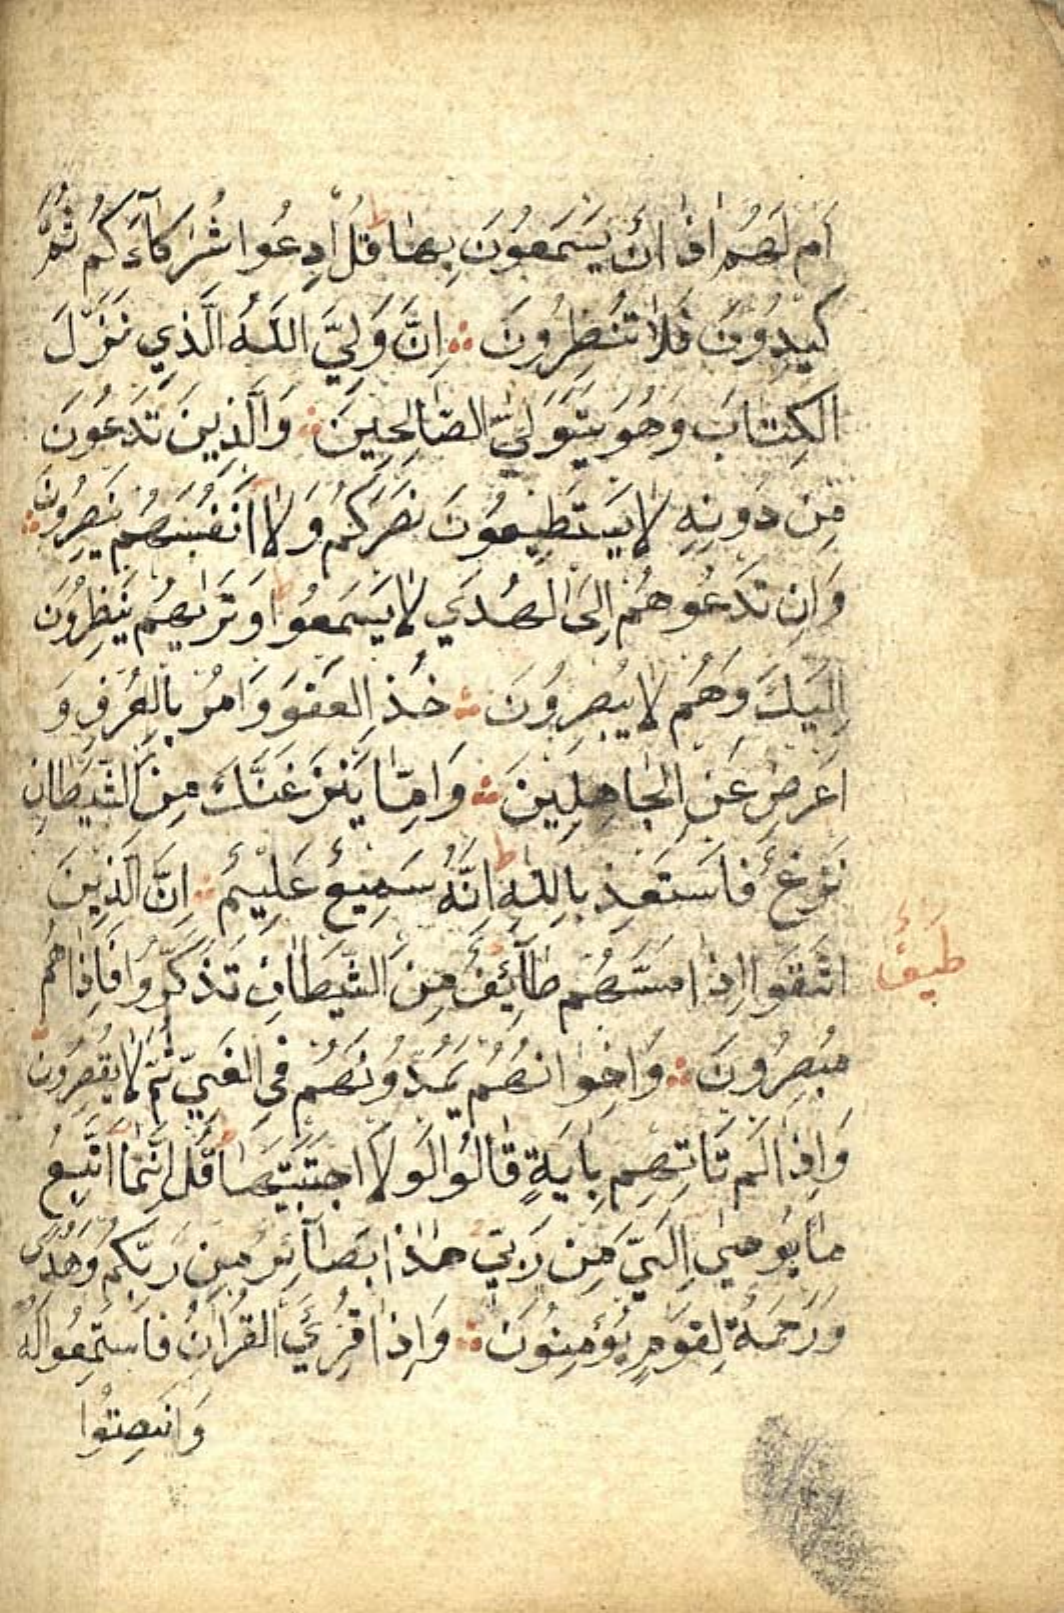 اَمْ لَهُمْ اٰذَانٌ يَسْمَعُونَ بِهَا ط قُلِ ادْعُوا شُرَكَآءَكُمْ ثُمَّ
كِيدُونِ فَلَا تُنْظِرُونَ ۞ اِنَّ وَلِيَّ اللّٰهُ الَّذِي نَزَّلَ
الْكِتَابَ وَهُوَ يَتَوَلَّى الصَّالِحِينَ ۞ وَالَّذِينَ تَدْعُونَ
مِنْ دُونِهِ لَا يَسْتَطِيعُونَ نَصْرَكُمْ وَلَا اَنْفُسَهُمْ يَنْصُرُونَ ۞
وَاِنْ تَدْعُوهُمْ اِلَى الْهُدَى لَا يَسْمَعُوا ط وَتَرٰيهُمْ يَنْظُرُونَ
اِلَيْكَ وَهُمْ لَا يُبْصِرُونَ ۞ خُذِ الْعَفْوَ وَامُرْ بِالْعُرْفِ وَ
اَعْرِضْ عَنِ الْجَاهِلِينَ ۞ وَاِمَّا يَنْزَغَنَّكَ مِنَ الشَّيْطَانِ
نَزْغٌ فَاسْتَعِذْ بِاللّٰهِ ط اِنَّهُ سَمِيعٌ عَلِيمٌ ۞ اِنَّ الَّذِينَ
اتَّقَوْا اِذَا مَسَّهُمْ طَآئِفٌ مِنَ الشَّيْطَانِ تَذَكَّرُوا فَاِذَا هُمْ
طَيْفٌ
مُبْصِرُونَ ۞ وَاِخْوَانُهُمْ يَمُدُّونَهُمْ فِي الْغَيِّ ثُمَّ لَا يُقْصِرُونَ ۞
وَاِذَا لَمْ تَاْتِهِمْ بِاٰيَةٍ قَالُوا لَوْلَا اجْتَبَيْتَهَا ط قُلْ اِنَّمَا اَتَّبِعُ
مَا يُوحٰى اِلَيَّ مِنْ رَبِّي هٰذَا بَصَآئِرُ مِنْ رَبِّكُمْ وَهُدًى
وَرَحْمَةٌ لِقَوْمٍ يُؤْمِنُونَ ۞ وَاِذَا قُرِئَ الْقُرْاٰنُ فَاسْتَمِعُوا لَهُ
وَانْصِتُوا